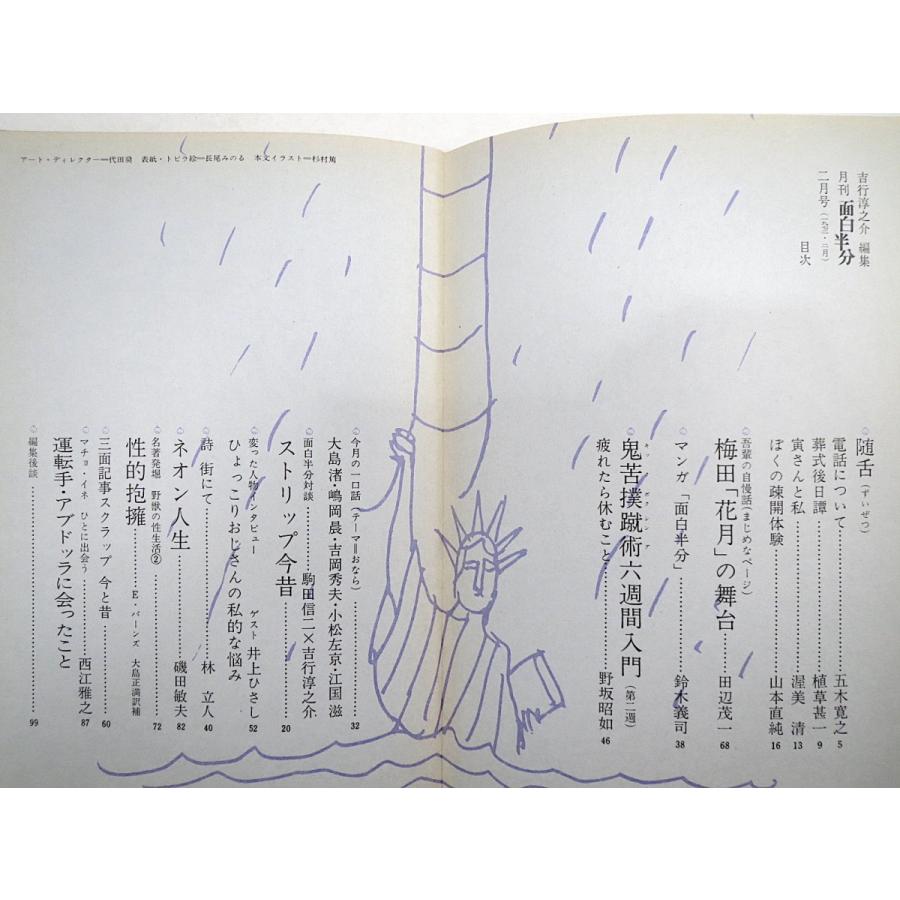 吉行淳之介 編集
月刊 面白半分
二月号(一九七三・二月)
目次
随舌(ずいぜつ)
電話について 五木寛之 5
葬式後日譚 植草甚一 9
寅さんと私 渥美 清 13
ぼくの疎開体験 山本直純 16
吾輩の自慢話(まじめなページ)
梅田「花月」の舞台 田辺茂一 68
マンガ「面白半分」 鈴木義司 38
鬼苦撲蹴術六週間入門(第二週)
キックボクシング
疲れたら休むこと 野坂昭如 46
今月の一口話(テーマ=おなら)
大島渚・嶋岡晨・吉岡秀夫・小松左京・江国 滋 32
面白半分対談 駒田信二×吉行淳之介
ストリップ今昔 20
変った人物インタビュー ゲスト 井上ひさし 52
ひょっこりおじさんの私的な悩み
詩 街にて 林 立人 40
ネオン人生 磯田敏夫 82
名著発堀 野獣の性生活②
性的抱擁 E・バーンズ 大島正満訳補 72
三面記事スクラップ 今と昔 60
マチョ・イネ ひとに出会う 西江雅之 87
運転手・アブドッラに会ったこと
編集後談 99
アート・ディレクター=代田奨 表紙・トビラ絵=長尾みのる 本文イラスト=杉村篤